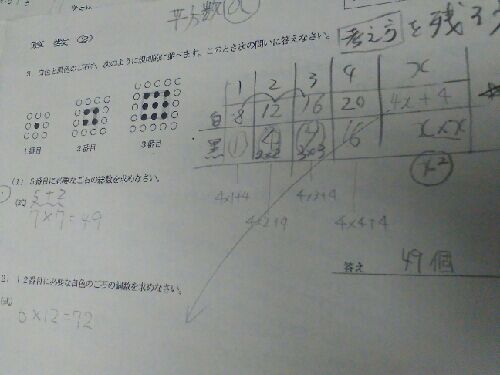 平方数
考え方を残そう
3 白色と黒色のご石が、次のように規則的に並べます。このとき次の問いに答えなさい。
1番目 2番目 3番目
1 2 3 4 x
白 8 12 16 20 4x+4
黒 1 4 9 16 x×x
2×2 3×3
x²
(1) 5番目に必要なご石の総数を求めなさい。
(式) 5+2
7×7=49
4×1+4 4×2+4 4×3+4 4×4+4
答え 49個
12番目に必要な白色のご石の個数を求めなさい。
(式)
6×12=72